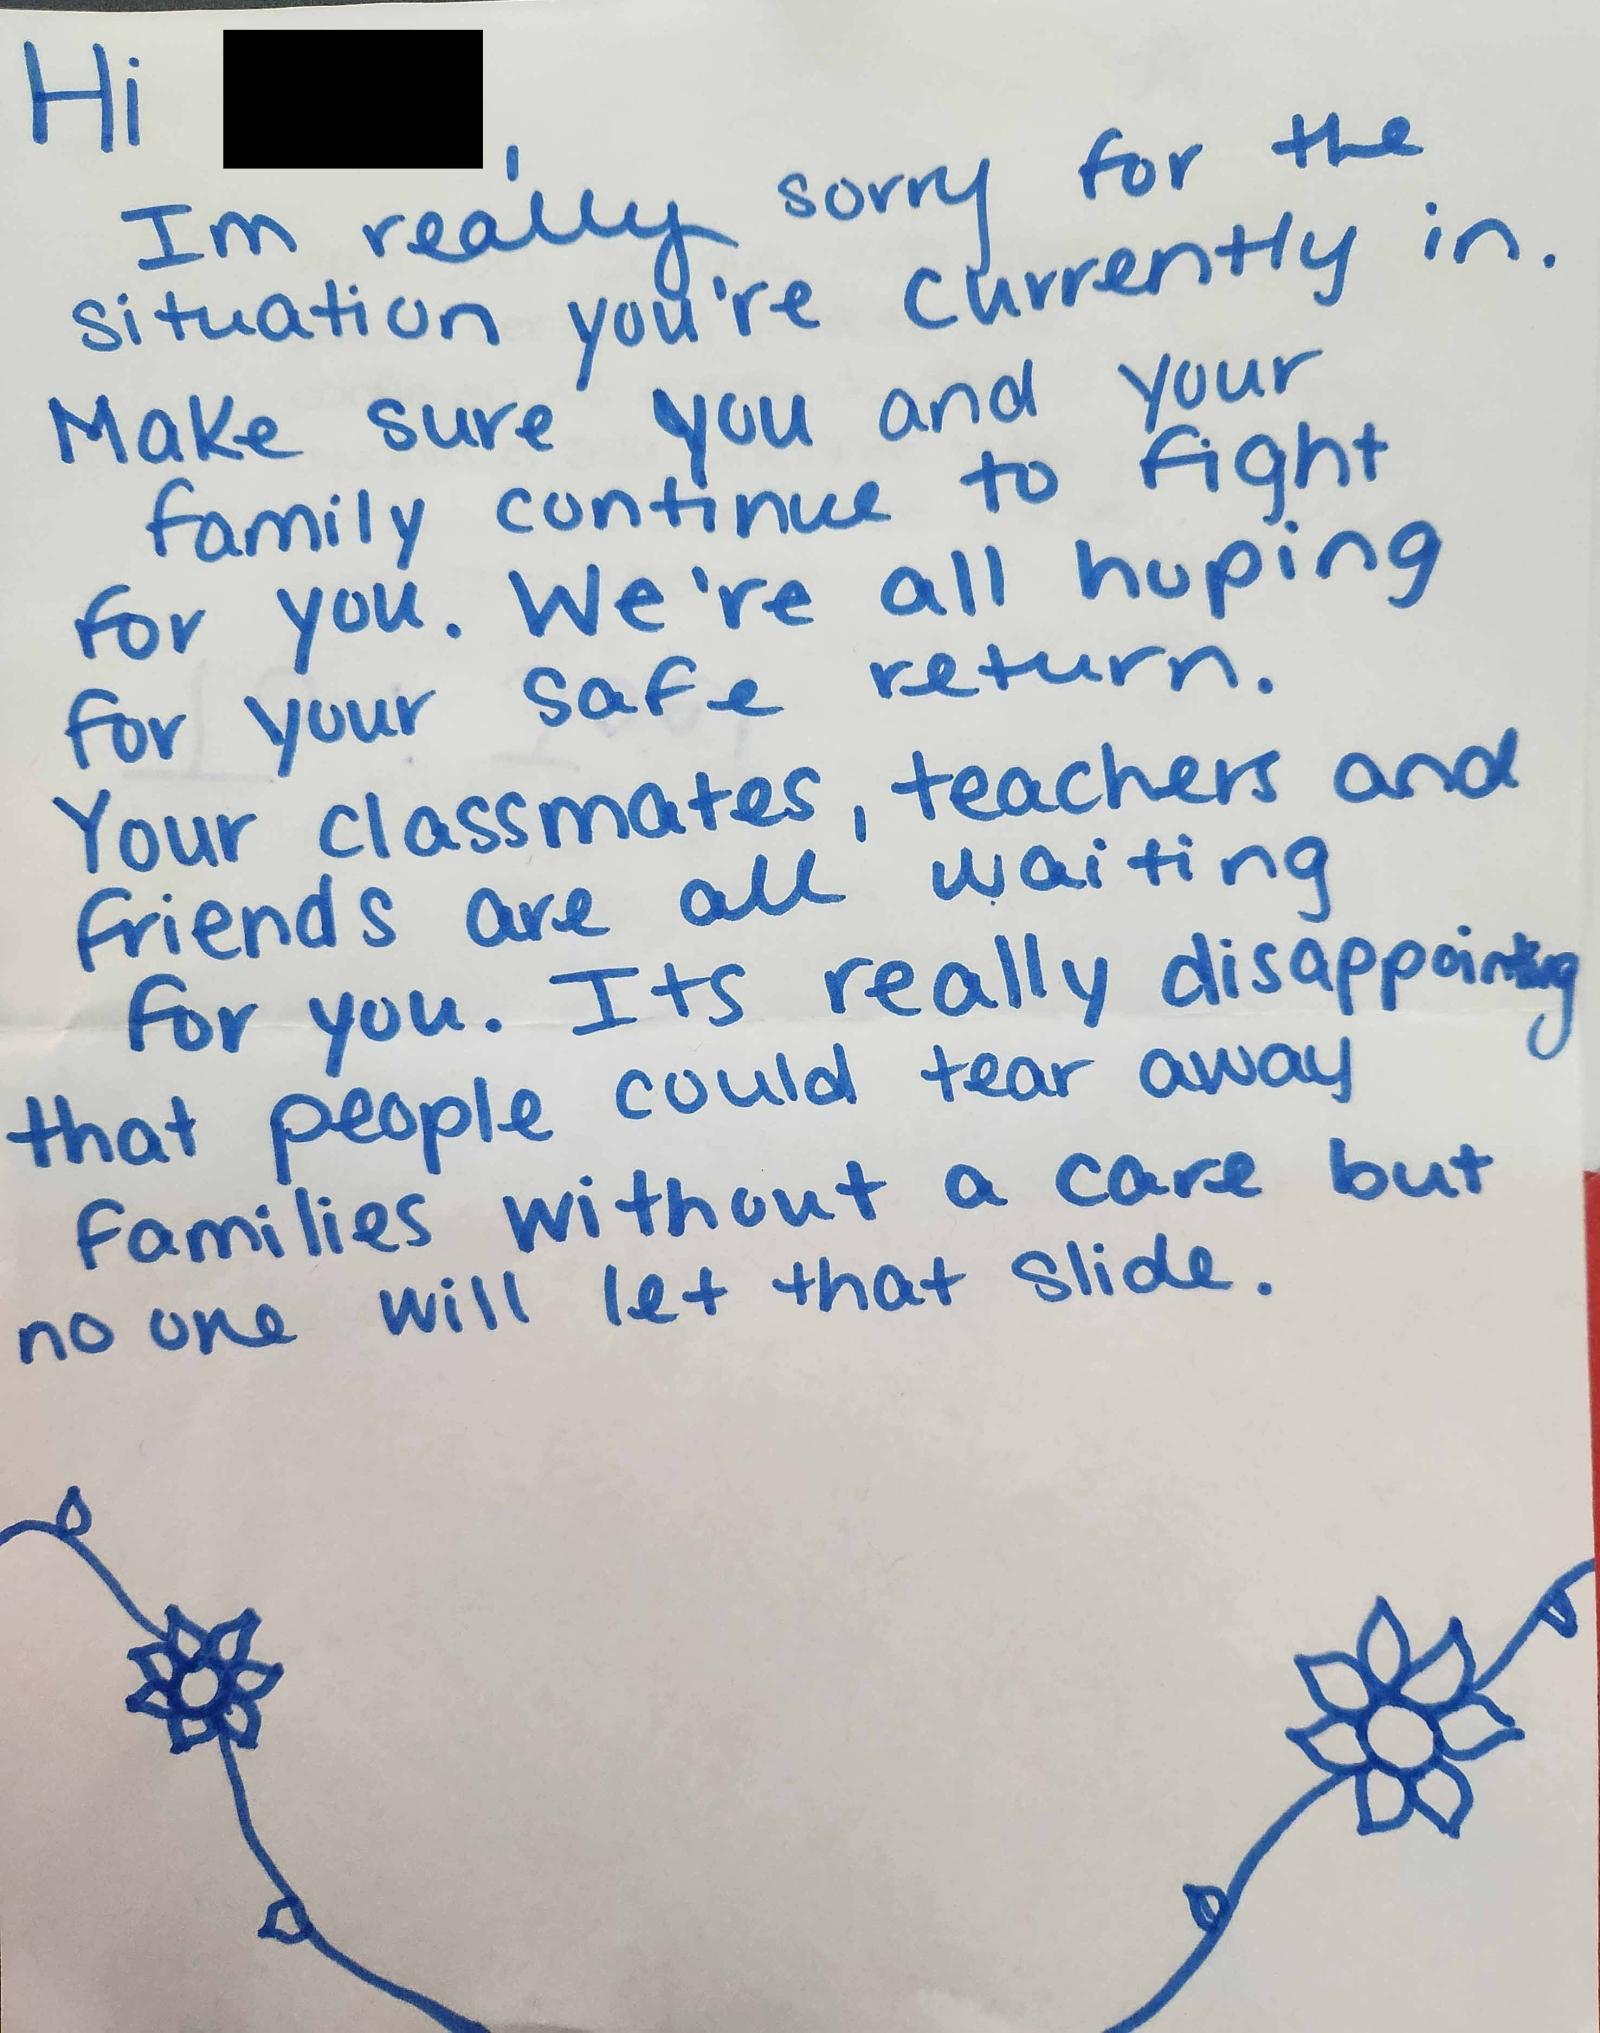 Hi ,
Im really sorry for the
situation you're currently in.
Make sure you and your
family continue to fight
for you. We're all hoping
for your safe return.
Your classmates, teachers and
friends are all waiting
for you. Its really disappointing
that people could tear away
families without a care but
no one will let that slide.